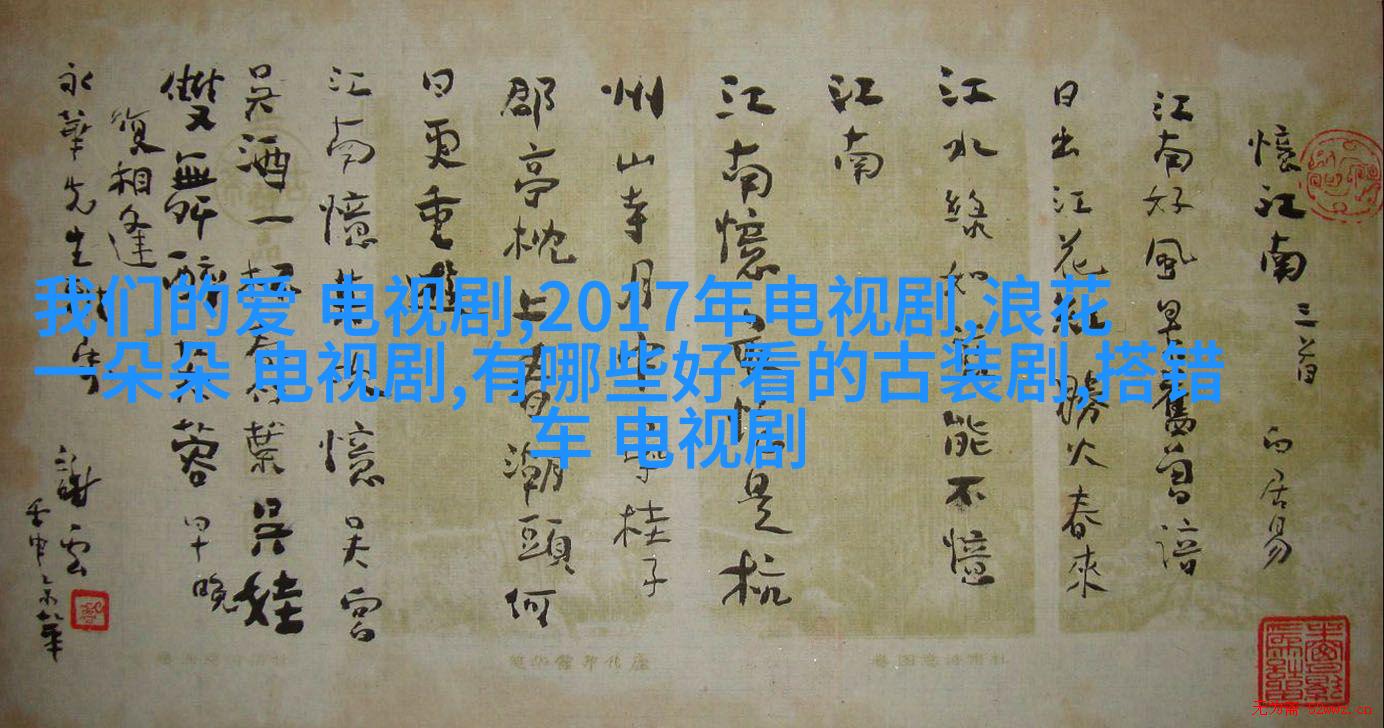 憶江南 三首 白居易
江南好風景舊曾諳
日出江花紅勝火春來
江水綠如藍能不憶
江南
江南憶最憶是杭
州山寺月中尋桂子
郡亭枕上看潮頭何
日更重遊
江南憶其次憶吳宮
吳酒一杯春竹葉吳娃
雙舞醉芙蓉早晚
復相逢
永華先生
謝雲
壬申
我们的爱 电视剧,2017年电视剧,浪花
一朵朵 电视剧,有哪些好看的古装剧,搭错
车 电视剧